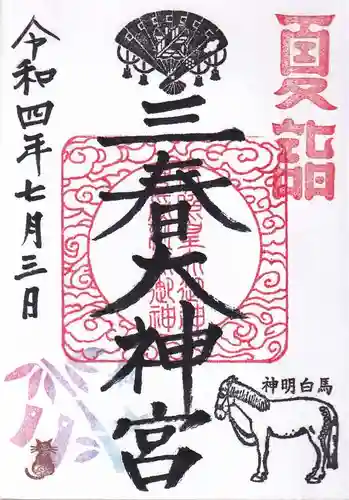 夏詣
三春大神宮
令和四年七月三日
神明白馬